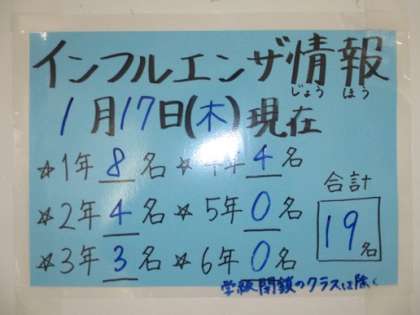 インフルエンザ情報
じょうほう
1月17日(木)現在
☆1年8名 ☆4年4名
☆2年4名 ☆5年0名
☆3年3名 ☆6年0名
合計
19名
学級閉鎖のクラスは除く